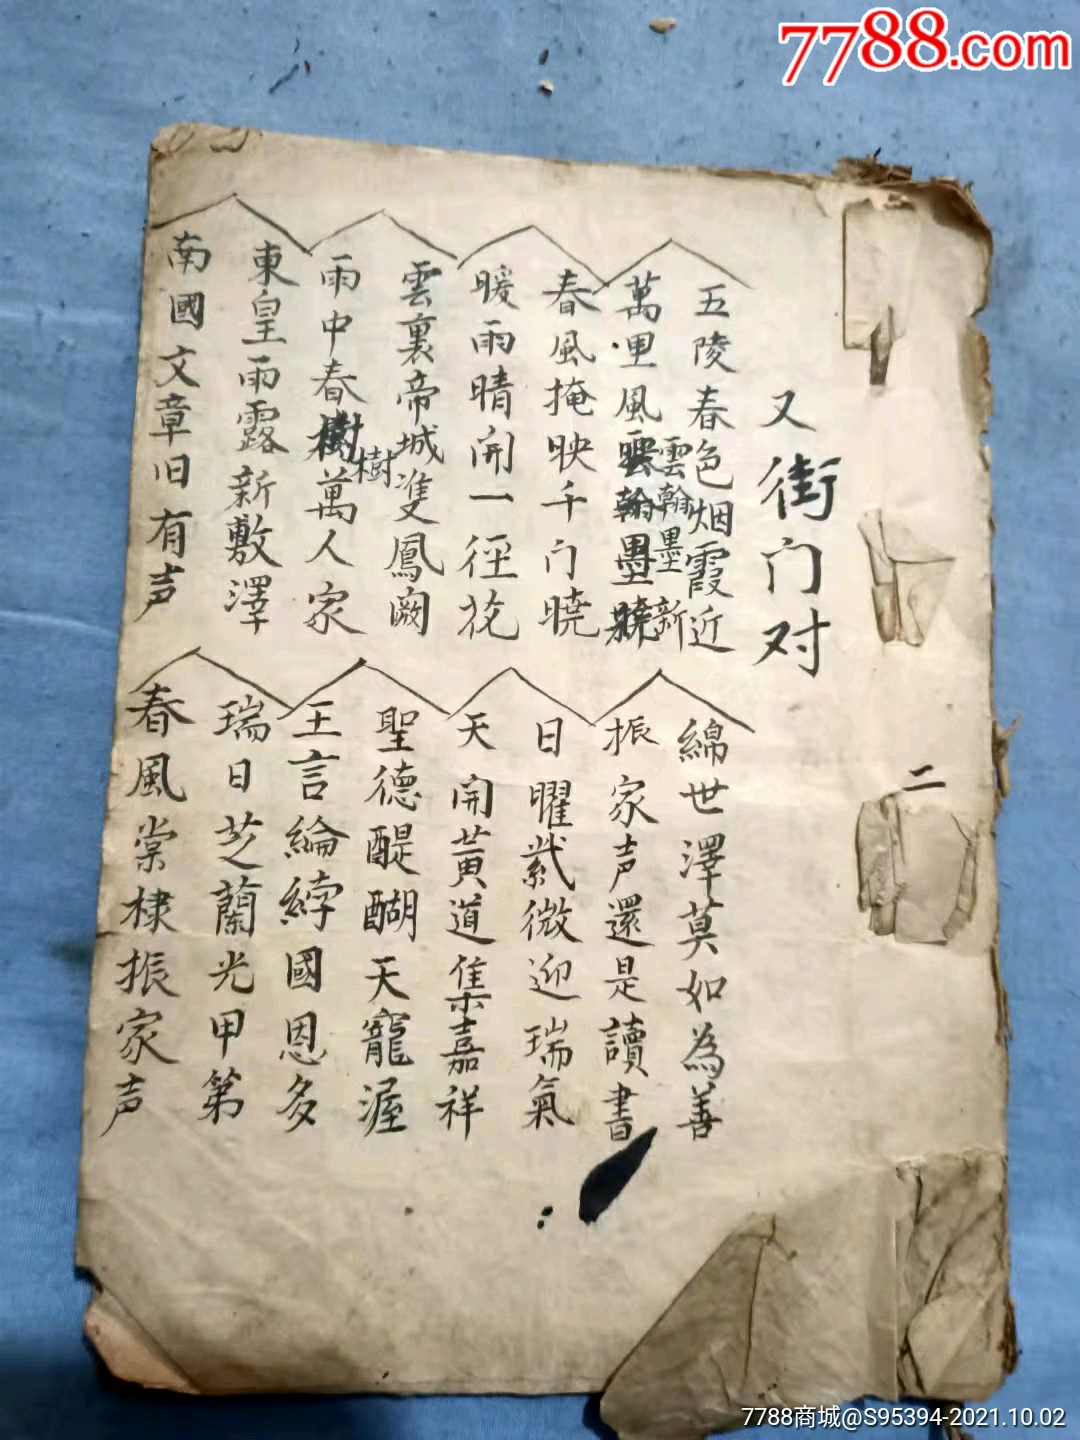 7788.com
又街门对
二
五陵春色烟霞近
萬里風雲翰墨新
雲翰墨
春風掩映千门曉
暖雨晴開一径花
雲裏帝城雙鳳闕
雨中春樹萬人家
樹
東皇雨露新敷澤
南國文章旧有声
綿世澤莫如為善
振家声還是讀書
日曜紫微迎瑞氣
天開黄道集嘉祥
聖德醍醐天寵渥
王言綸綍國恩多
瑞日芝蘭光甲第
春風棠棣振家声
7788商城@S95394-2021.10.02